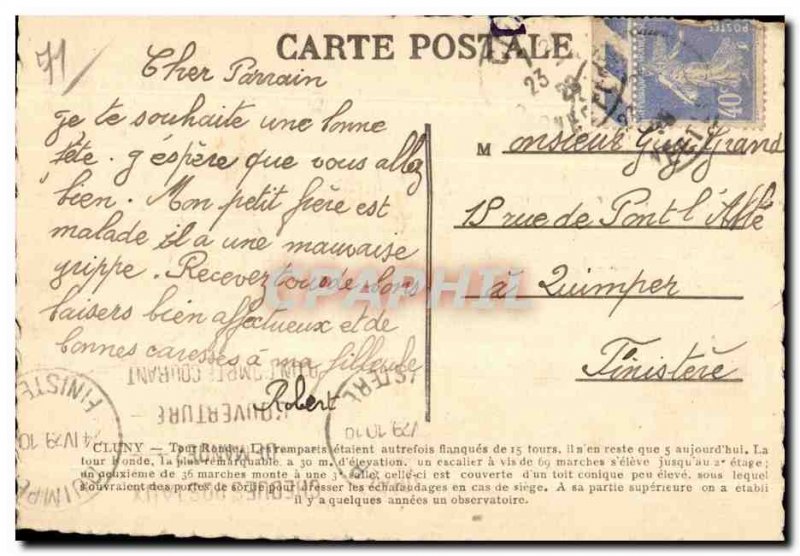 71
CARTE POSTALE
40c
Cher Parrain
Je te souhaite une bonne
fête. J'éspère que vous allez
bien. Mon petit frère est
malade il a une mauvaise
grippe. Recevez tous de bons
baisers bien affectueux et de
bonnes caresses à ma filleule
Robert
Monsieur Guy Grand
18 rue de Pont l'Abbé
à Quimper
Finistère
CPAPHIL
FINISTE
24 IV 29
QUIMPE
COMPTE COURANT
L'OUVERTURE
CHEQUES POSTAUX
CLUNY — Tour Ronde. Les remparts étaient autrefois flanqués de 15 tours, il n'en reste que 5 aujourd'hui. La
tour ronde, la plus remarquable a 30 m. d'élevation. un escalier à vis de 69 marches s'élève jusqu'au 2e étage;
un deuxième de 36 marches monte à une 3e salle, celle-ci est couverte d'un toit conique peu élevé, sous lequel
s'ouvraient des portes de sortie pour dresser les échafaudages en cas de siège. A sa partie supérieure on a établi
il y a quelques années un observatoire.